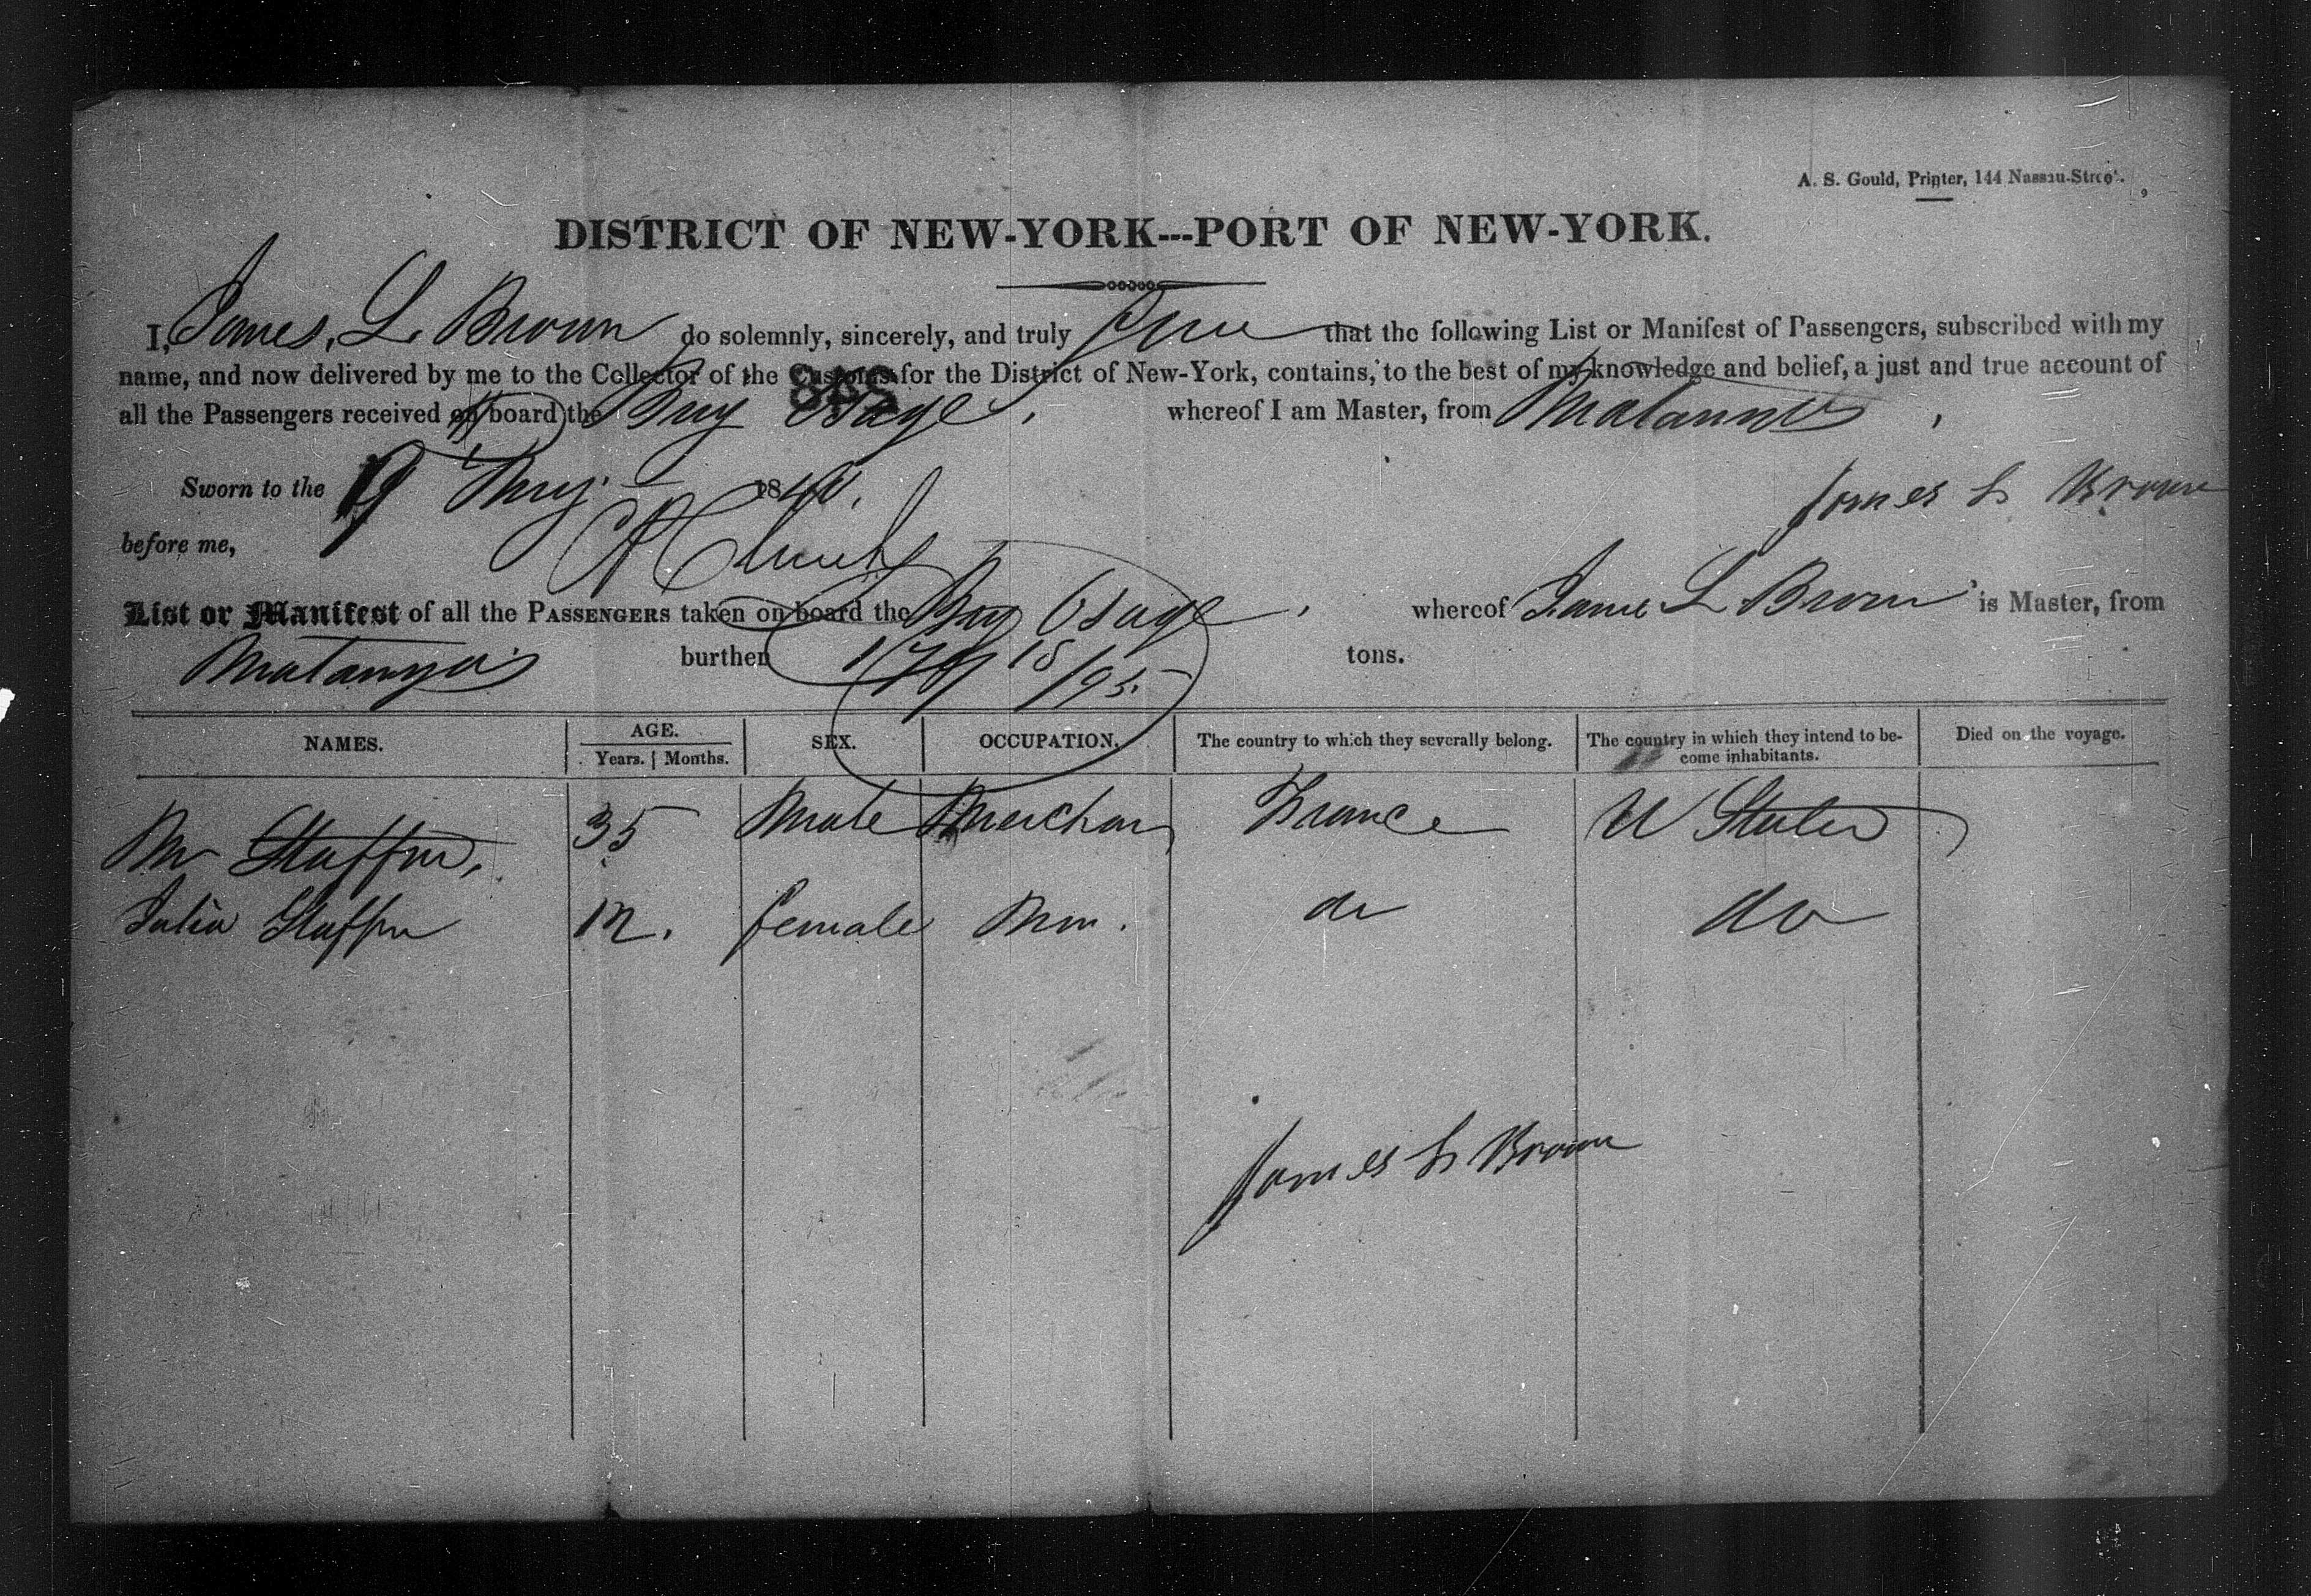 A. S. Gould, Printer, 144 Nassau-Street.
DISTRICT OF NEW-YORK---PORT OF NEW-YORK.
I, James, L. Brown do solemnly, sincerely, and truly that the following List or Manifest of Passengers, subscribed with my
name, and now delivered by me to the Collector of the Customs for the District of New-York, contains, to the best of my knowledge and belief, a just and true account of
all the Passengers received on board the Brig Osage, whereof I am Master, from Matanzas,
Sworn to the 19 1840.
James L Brown
before me,
List or Manifest of all the PASSENGERS taken on board the Brig Osage, whereof James L Brown is Master, from
Matanzas burthen tons.
NAMES. AGE. SEX. OCCUPATION. The country to which they severally belong. The country in which they intend to be- Died on the voyage.
Years. Months. come inhabitants.
Mr 35 Male Merchant France U States
Julia female do do
James L Brown